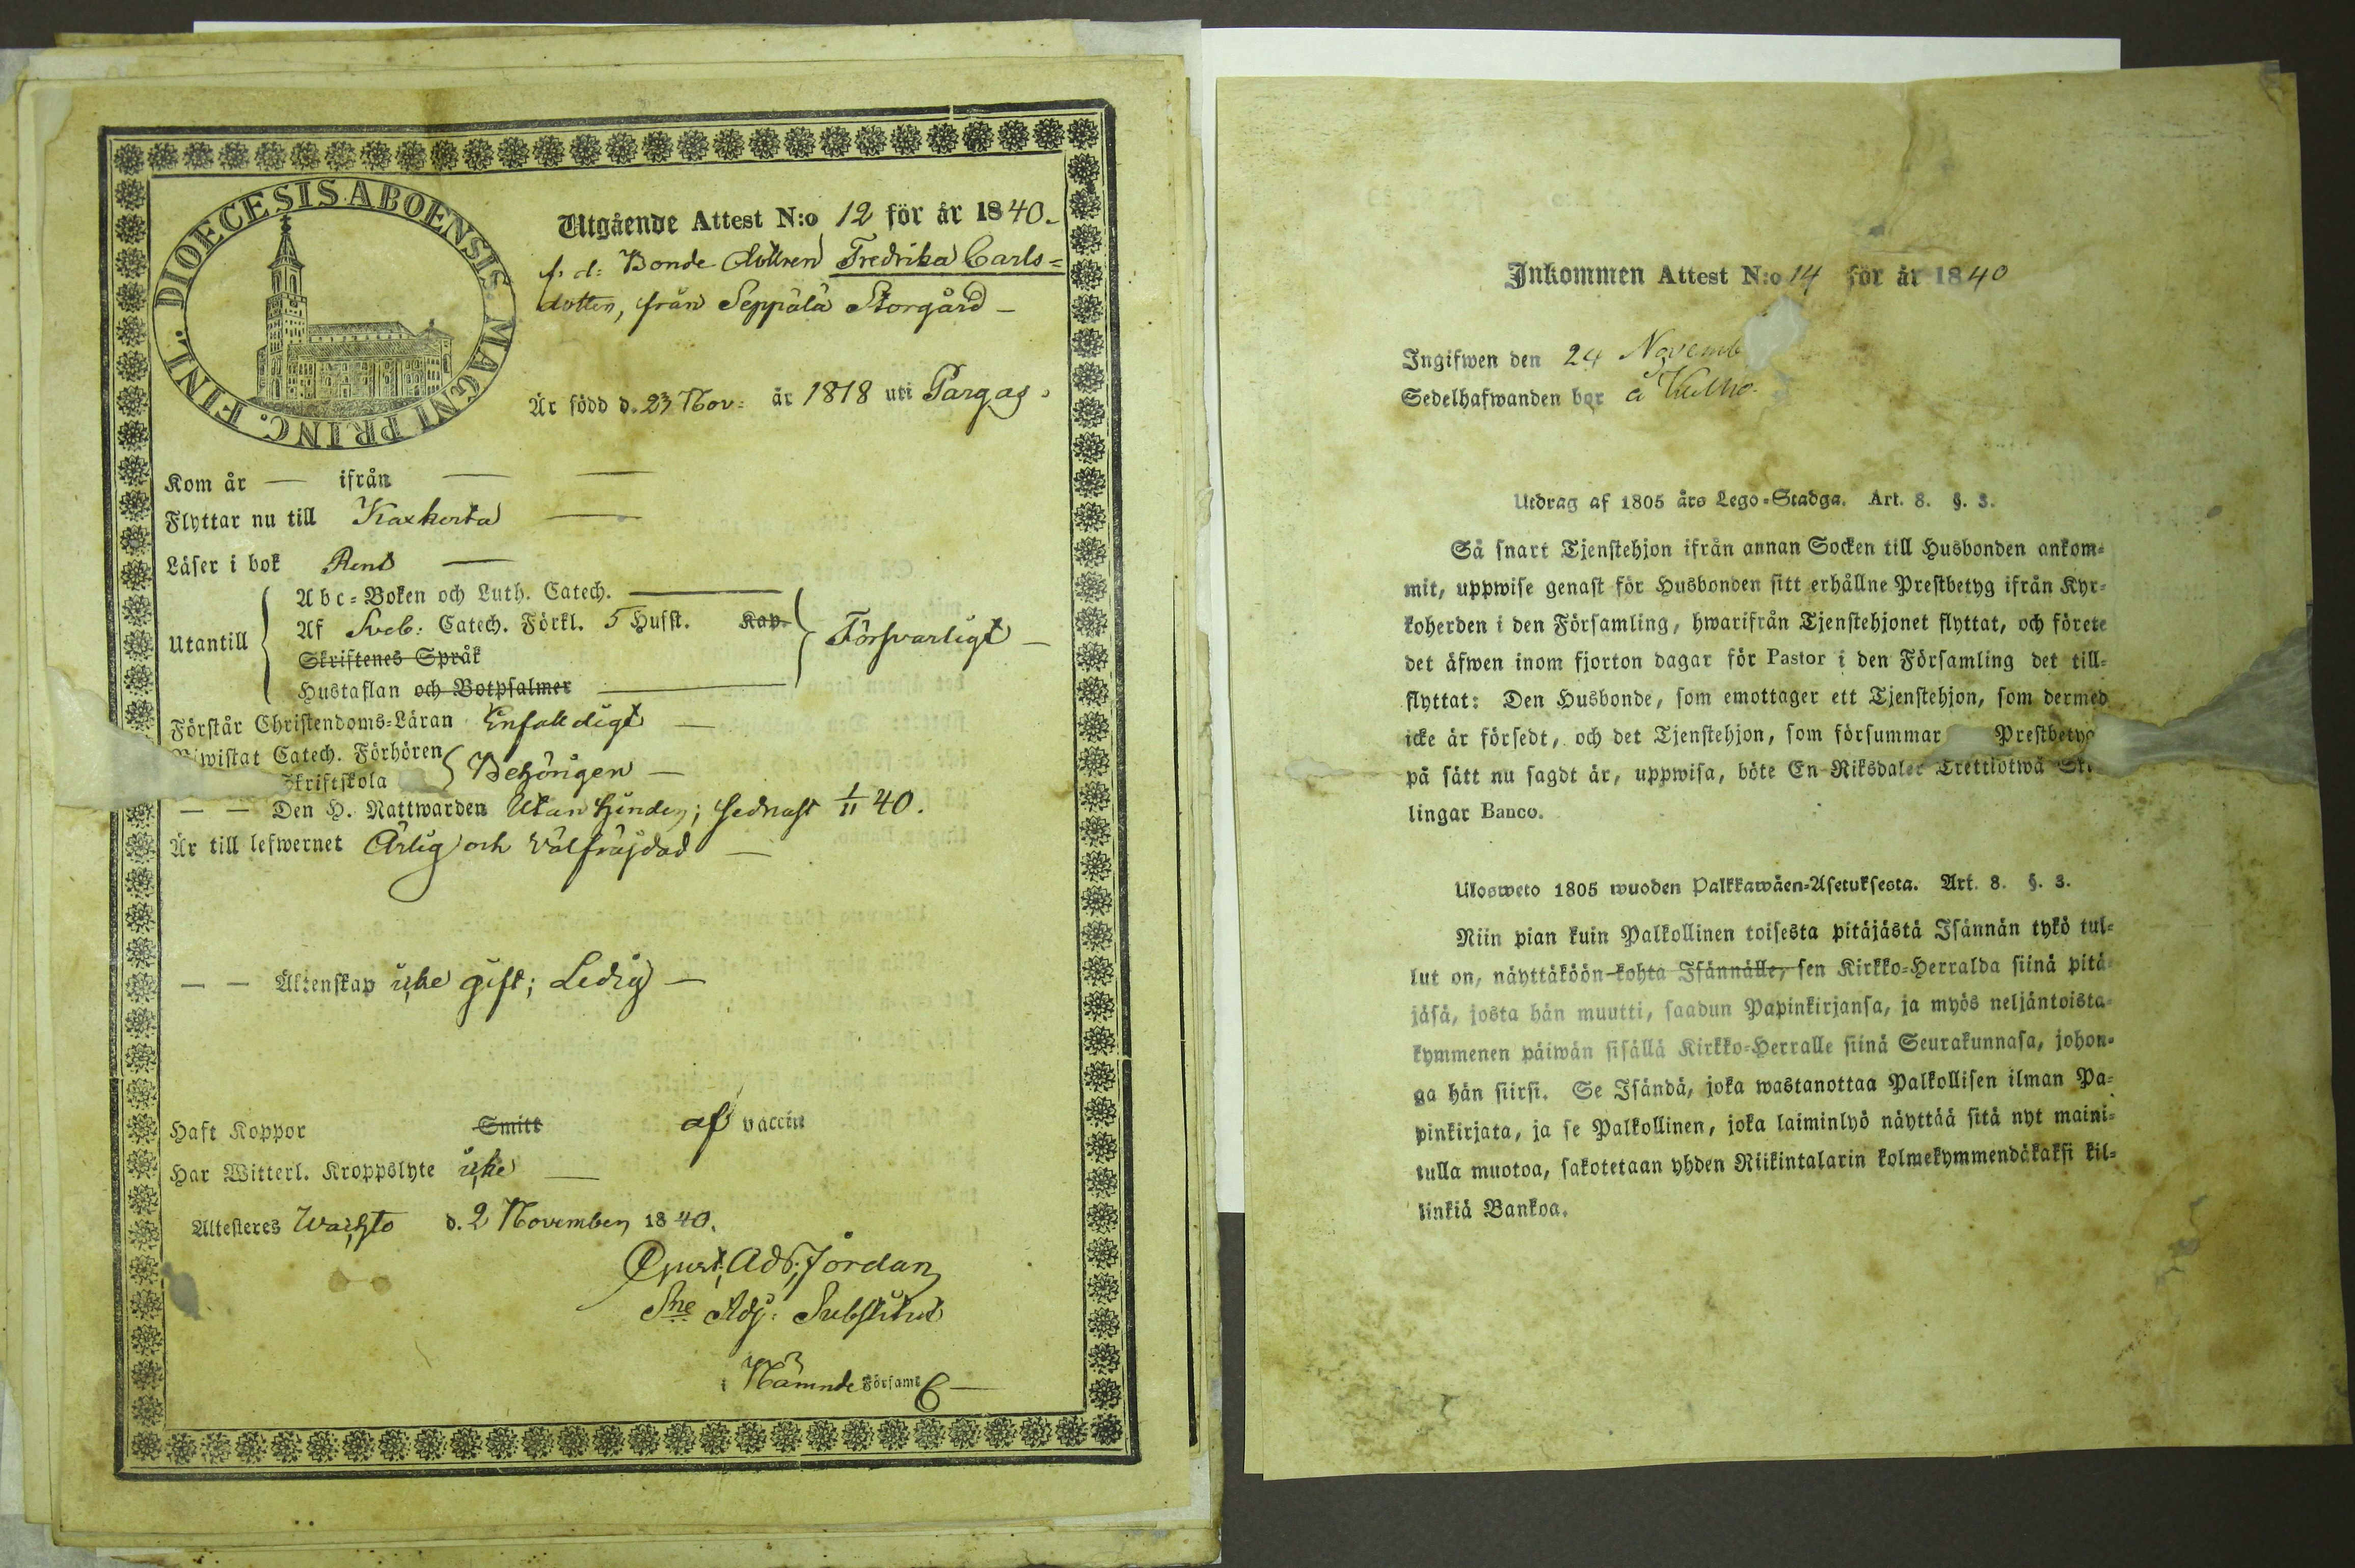 DIOECESIS ABOENSIS. MAGNI PRINC. FINL.
Utgående Attest N:o 12 för år 1840.
f. d. Bonde dottren Fredrika Carls=
dotter, från Seppälä Storgård —
Är född d. 23 Nov: år 1818 uti Pargas.
Kom år — ifrån —
Flyttar nu till Kaxkerta —
Läser i bok Rent —
Utantill
Abc=Boken och Luth. Catech.
Af Sveb: Catech. Förkl. 5 Hufst. Kap.
Skriftenes Språk
Hustaflan och Botpsalmer
Försvarligt —
Förstår Christendoms=Läran Enfalldigt —
wistat Catech. Förhören
Skriftskola
Behörigen —
— — Den H. Nattwarden Utan hinder; sednast 1/11 40.
Är till lefwernet Ärlig och välfräjdad —
— — Äktenskap icke gift; Ledig —
Haft Koppor Smitt af vaccin
Har Witterl. Kroppslyte icke —
Attesteres d. 2 November 1840.
Adv. Jordan
Sne Adj: Substitut
i Nämnde Församl
Inkommen Attest N:o 14 för år 1840
Ingifwen den 24 Novemb
Sedelhafwanden bor å
Utdrag af 1805 års Lego=Stadga. Art. 8. §. 3.
Så snart Tjenstehjon ifrån annan Socken till Husbonden ankom=
mit, uppwise genast för Husbonden sitt erhållne Prestbetyg ifrån Kyr=
koherden i den Församling, hwarifrån Tjenstehjonet flyttat, och förete
det äfwen inom fjorton dagar för Pastor i den Församling det till=
flyttat: Den Husbonde, som emottager ett Tjenstehjon, som dermed
icke är försedt, och det Tjenstehjon, som försummar Prestbetyg
på sätt nu sagdt är, uppwisa, böte En Riksdaler Trettiotwå Sk
lingar Banco.
Ulosweto 1805 wuoden Palkkawäen=Asetuksesta. Art. 8. §. 3.
Niin pian kuin Palkollinen toisesta pitäjästä Isännän tykö tul=
lut on, näyttäköön kohta Isännälle, sen Kirkko=Herralda siinä pitä=
jäsä, josta hän muutti, saadun Papinkirjansa, ja myös neljäntoista=
kymmenen päiwän sisällä Kirkko=Herralle siinä Seurakunnasa, johon=
ga hän siirsi. Se Isändä, joka wastanottaa Palkollisen ilman Pa=
pinkirjata, ja se Palkollinen, joka laiminlyö näyttää sitä nyt maini=
tulla muotoa, sakotetaan yhden Riikintalarin kolmekymmendäkaksi kil=
linkiä Bankoa.